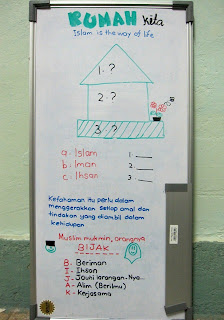 RUMAH kita
Islam is the way of life
1. ?
2. ?
3. ?
a. Islam 1. ___
b. Iman 2. ___
c. Ihsan 3. ___
Kefahaman itu perlu dalam
menggerakkan setiap amal dan
tindakan yang diambil dalam
kehidupan
Muslim mukmin, orangnya
BIJAK
B - Beriman
I - Ihsan
J - Jauhi larangan-Nya
A - Alim (Berilmu)
K - Kerjasama